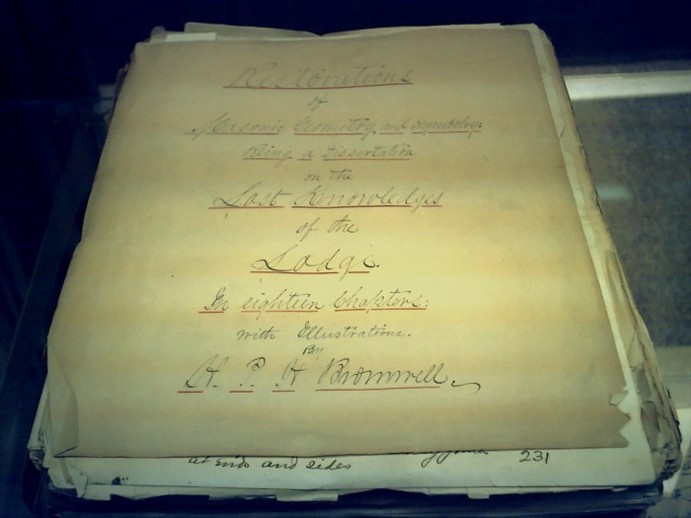 Restorations
of
Masonic Geometry and Symbology:
Being a Dissertation
on the
Lost Knowledges
of the
Lodge.
In eighteen Chapters:
with Illustrations.
By
H. P. H Bromwell.
at ends and sides
231